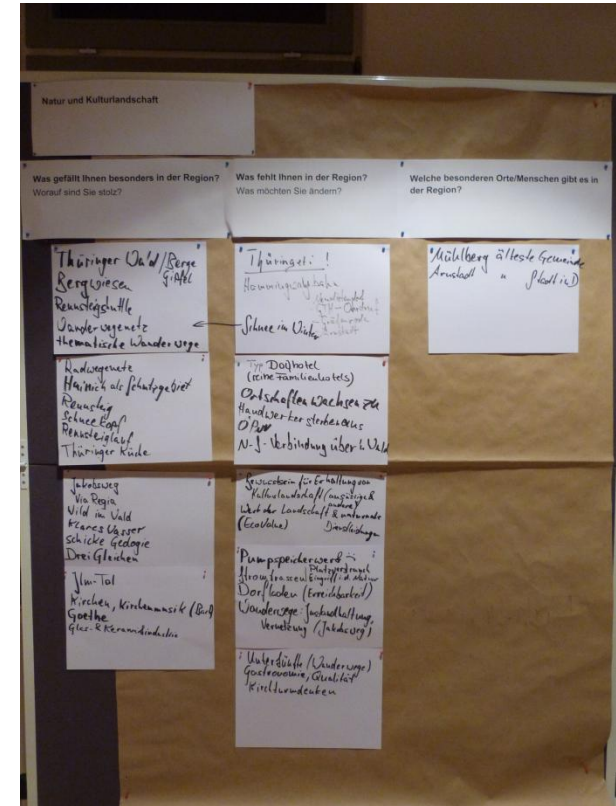 Natur und Kulturlandschaft
Was gefällt Ihnen besonders in der Region?
Worauf sind Sie stolz?
Thüringer Wald/Berge
Gipfel
Bergwiesen
Rennsteigshuttle
Wanderwegenetz
thematische Wanderwege
Radwegenetz
Hainich als Schutzgebiet
Rennsteig
Schneekopf
Rennsteiglauf
Thüringer Küche
Jakobsweg
Via Regia
Wild im Wald
klares Wasser
schicke Geologie
Drei Gleichen
Ilm-Tal
Kirchen, Kirchenmusik (Bach)
Goethe
Glas- & Keramikindustrie
Was fehlt Ihnen in der Region?
Was möchten Sie ändern?
Thüringeti!
Schnee im Winter
Typ Dorfhotel
(keine Familienhotels)
Ortschaften wachsen zu
Handwerker sterben aus
ÖPNV
N-S-Verbindung über'n Wald
Bewusstsein für Erhaltung von
Kulturlandschaft
Wert der Landschaft & naturnahe
(EcoValue) Dienstleistungen
Pumpspeicherwerk
Stromtrassen Eingriff i.d. Natur
Dorfladen (Erreichbarkeit)
Wanderwege: Instandhaltung,
Vernetzung (Jakobsweg)
Unterkünfte (Wanderwege)
Gastronomie, Qualität
Kirchturmdenken
Welche besonderen Orte/Menschen gibt es in
der Region?
Mühlberg älteste Gemeinde
Arnstadt " Stadt in D